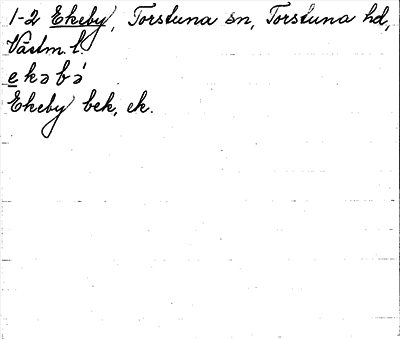 1-2 Ekeby, Torstuna sn, Torstuna hd,
Västm. l.
e k ə b ə́
Ekeby bek, ek.